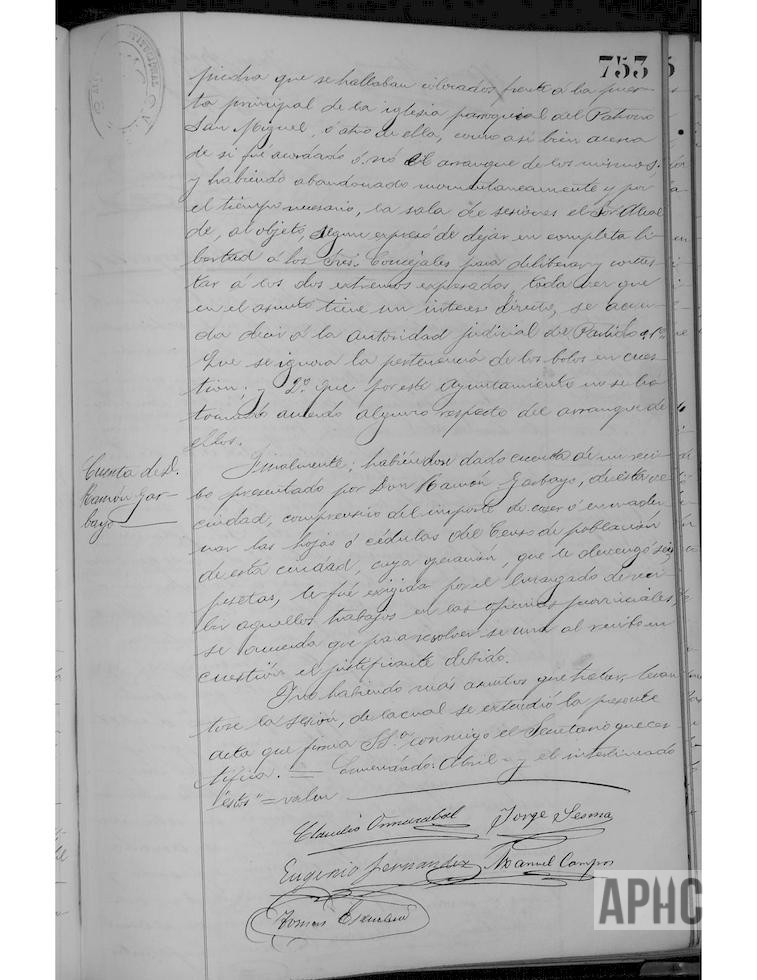 753
piedra que se hallaban colocados frente á la puer-
ta principal de la iglesia parroquial del Patrono
San Miguel, ó atrio de ella, como asi bien acerca
de si fué acordado ó nó el arranque de los mismos;
y habiendo abandonado momentaneamente y por
el tiempo necesario, la sala de sesiones el Sor Alcal
de, al objeto, segun expresó de dejar en completa li-
bertad á los Sres. Concejales para deliberar y contes-
tar á los dos extremos expresados, toda vez que
en el asunto tiene un interes directo, se acuer-
da decir á la autoridad judicial de Partido: 1º
Que se ignora la pertenencia de los bolos en cues-
tion; y 2º que por este Ayuntamiento no se ha
tomado acuerdo alguno respecto del arranque de
ellos.
Cuenta de D.
Ramón Gar-
bayo
Finalmente; habiendose dado cuenta de un reci-
bo presentado por Don Ramón Garbayo, de esta ve
cindad, comprensivo del importe de coser ó encuader
nar las hojas ó cédulas del Censo de población
de esta ciudad, cuya operación, que le devengó seis
pesetas, le fué exigida por el Encargado de reci
bir aquellos trabajos en las oficinas provinciales,
se acuerda que para resolver se una al recibo en
cuestión el justificante debido.
Y no habiendo más asuntos que tratar, levan
tose la sesión, de la cual se extendió la presente
acta que firma SSª conmigo el Secretario que cer-
tifica. = Enmendado: Abril = y el interlineado
"éstos" = valen
Claudio Ormazabal Jorge Sesma
Eugenio Fernandez Manuel Campos
Tomás
APHC